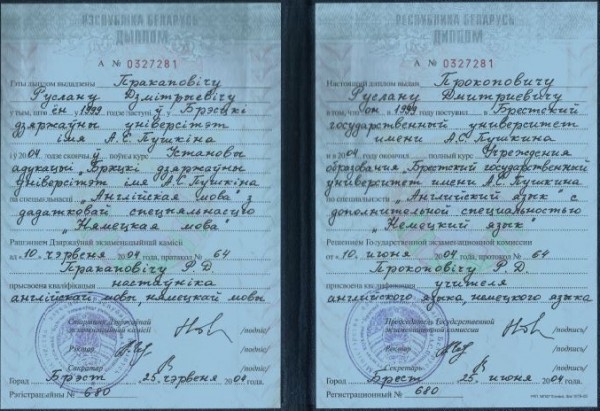 РЭСПУБЛІКА БЕЛАРУСЬ
ДЫПЛОМ
А № 0327281
Гэты дыплом выдадзены Пракаповічу
Руслану Дмітрыевічу
у тым, што ён у 1999 годзе паступіў у Брэсцкі
дзяржаўны універсітэт
імя А.С. Пушкіна
і ў 2004 годзе скончыў поўны курс Установы
адукацыі „Брэсцкі дзяржаўны
універсітэт імя А.С. Пушкіна
па спецыяльнасці „Англійская мова з
дадатковай спецыяльнасцю
„Нямецкая мова”
Рашэннем Дзяржаўнай экзаменацыйнай камісіі
ад 10 чэрвеня 2004 года, пратакол № 64
Пракаповічу Р. Д.
прысвоена кваліфікацыя настаўніка
англійскай мовы, нямецкай мовы
Старшыня Дзяржаўнай
экзаменацыйнай камісіі /подпіс/
Рэктар /подпіс/
Сакратар /подпіс/
Горад Брэст 25 чэрвеня 2004 года.
Рэгістрацыйны № 680
РЕСПУБЛИКА БЕЛАРУСЬ
ДИПЛОМ
А № 0327281
Настоящий диплом выдан Прокоповичу
Руслану Дмитриевичу
в том, что он в 1999 году поступил в Брестский
государственный университет
имени А.С. Пушкина
и в 2004 году окончил полный курс Учреждения
образования „Брестский государственный
университет имени А.С. Пушкина
по специальности „Английский язык с
дополнительной специальностью
„Немецкий язык”
Решением Государственной экзаменационной комиссии
от 10 июня 2004 года, протокол № 64
Прокоповичу Р. Д.
присвоена квалификация учителя
английского языка, немецкого языка
Председатель Государственной
экзаменационной комиссии /подпись/
Ректор /подпись/
Секретарь /подпись/
Город Брест 25 июня 2004 года.
Регистрационный № 680